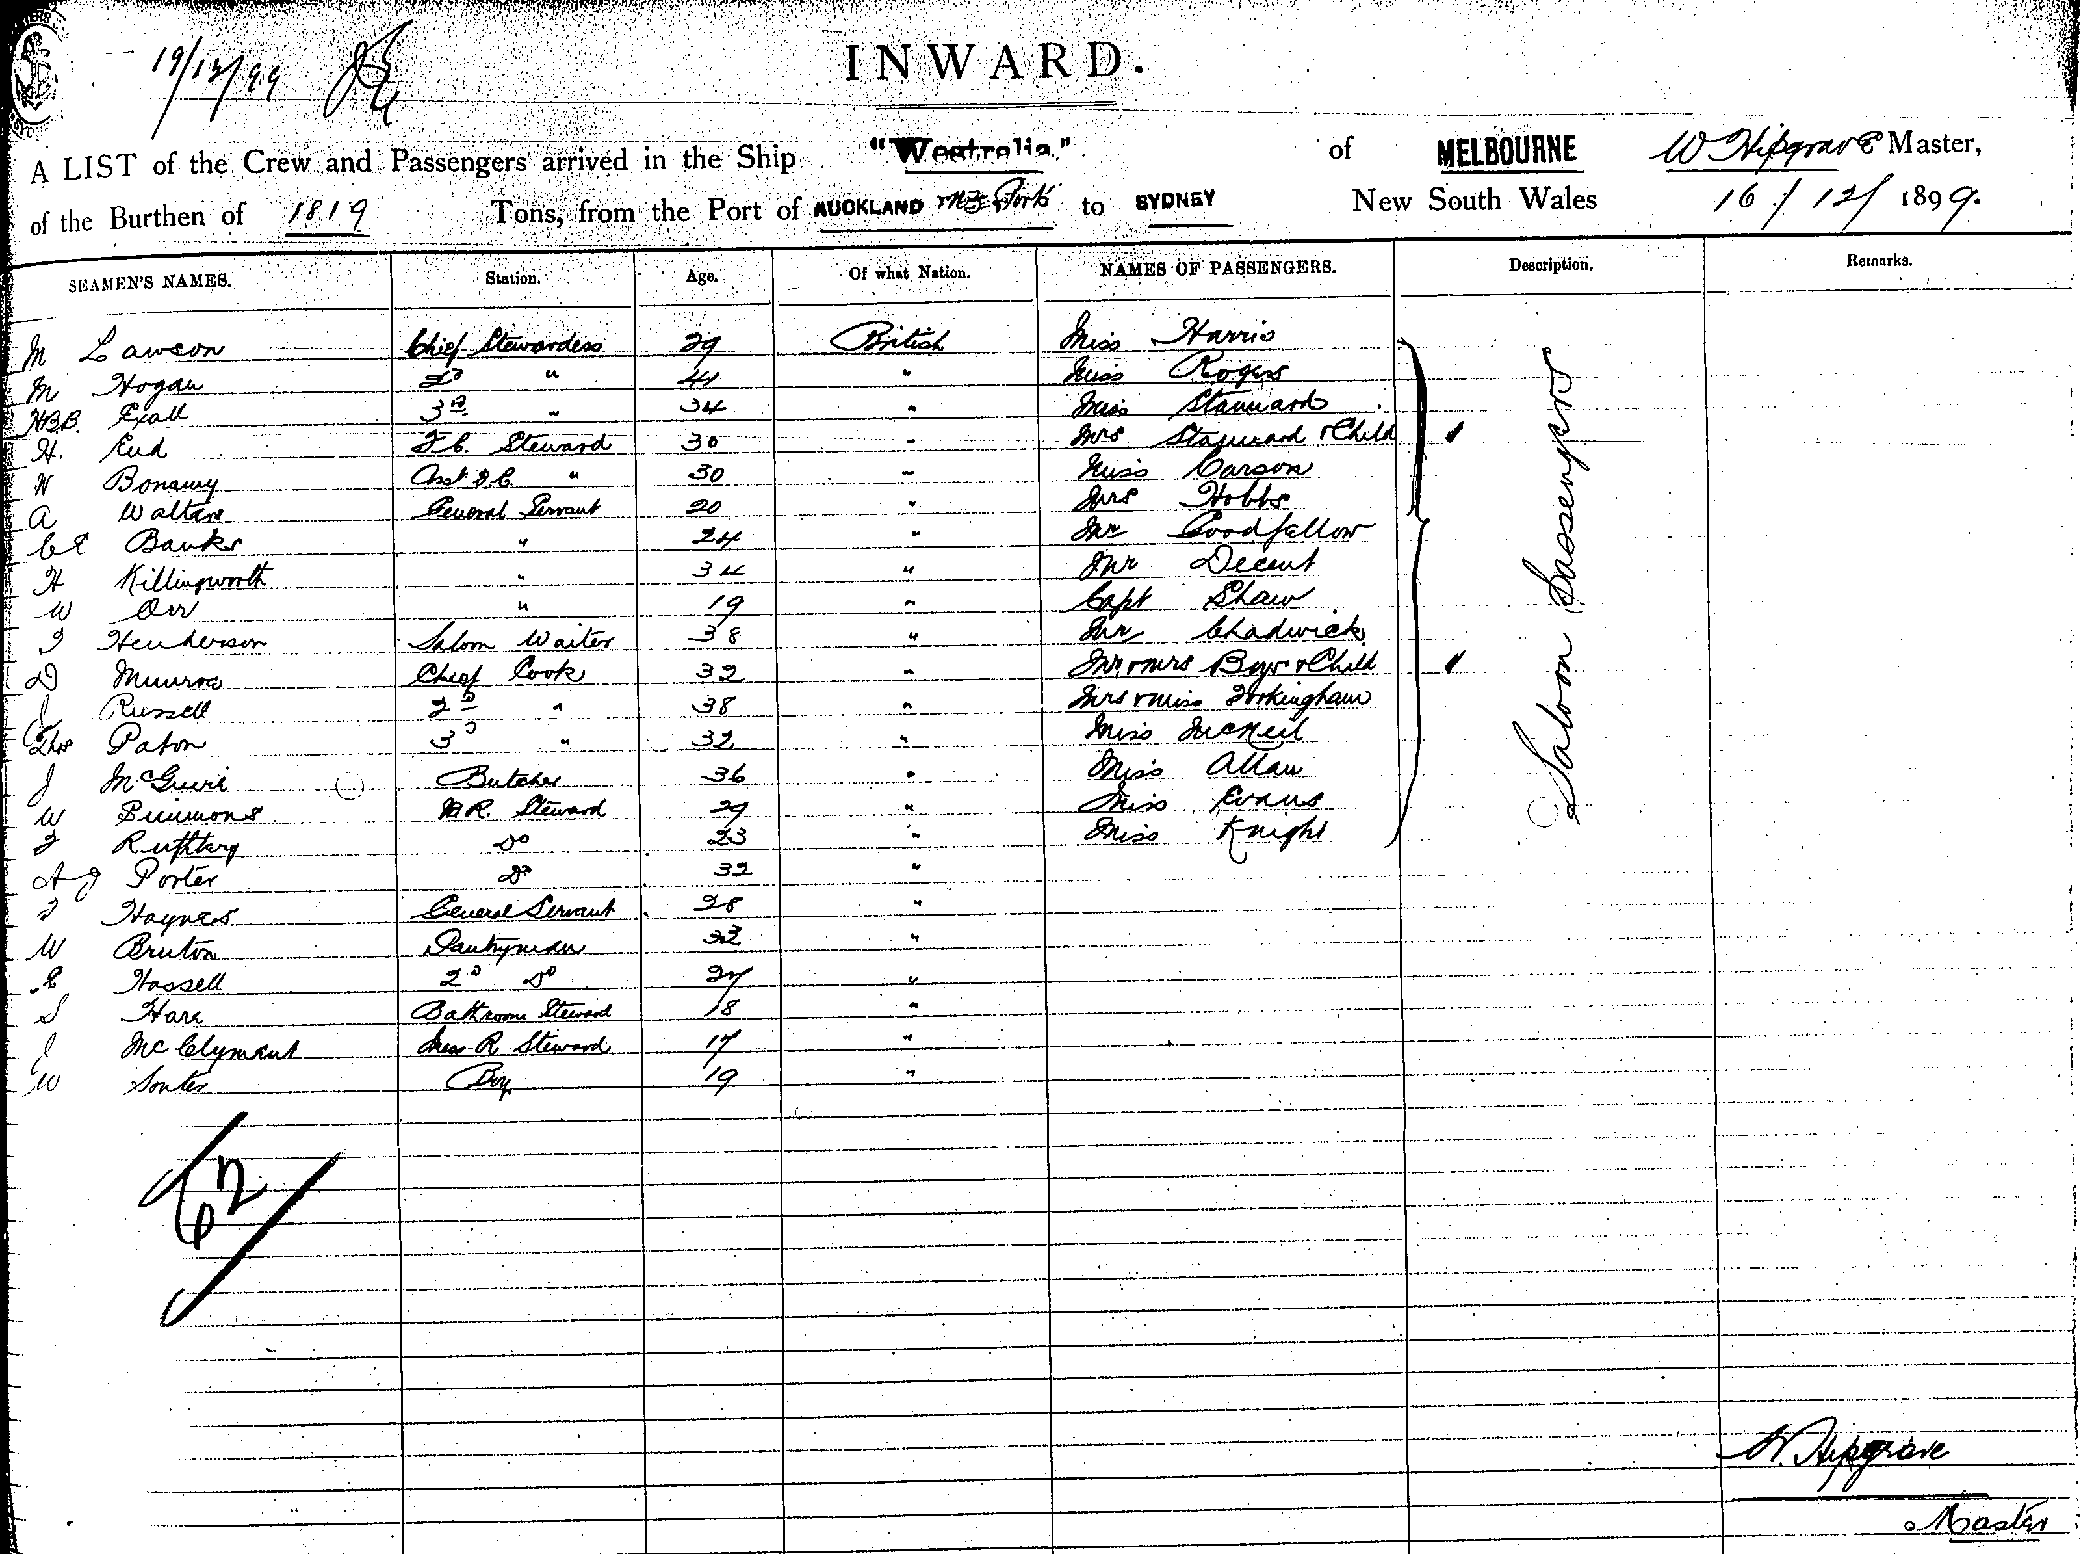 19/12/99
INWARD.
A LIST of the Crew and Passengers arrived in the Ship "Westralia" of MELBOURNE W Hipgrave Master,
of the Burthen of 1819 Tons, from the Port of AUCKLAND NZ Ports to SYDNEY New South Wales 16/12/1899.
SEAMEN'S NAMES. Station. Age. Of what Nation. NAMES OF PASSENGERS. Description. Remarks.
M Lawson Chief Stewardess 29 British Miss Harris
M Hogan 2D " 41 " Miss Rogers
H.B.B. Exall 3D " 34 " Miss Stannard
H. End F.C. Steward 30 " Mrs Stannard & Child
W Bonamy Asst F.C. " 30 " Miss Carson
A Walters General Servant 20 " Mrs Hobbs
C E Banks " 24 " Mr Goodfellow
H Killingworth " 34 " Mr Decent
W Orr " 19 " Capt Shaw
J Henderson Saloon Waiter 38 " Mr Chadwick
D Munro Chief Cook 32 " Mr & Mrs Boys & Child
J Russell 2D " 38 " Mrs & Miss
Thos Paton 3D " 32 " Miss McNeil
J Butcher 36 " Miss Allan
W Simmons B.R. Steward 29 " Miss Evans
F Do 23 " Miss Knight
A J Porter Do 32 "
F Haynes General Servant 28 "
W Bruton Pantryman 33 "
E Hassell 2D Do 27 "
S Hare Bathroom Steward 18 "
J McClymont Mess R Steward 17 "
W Souter Boy 19 "
Saloon Passengers
62
W. Hipgrave
Master